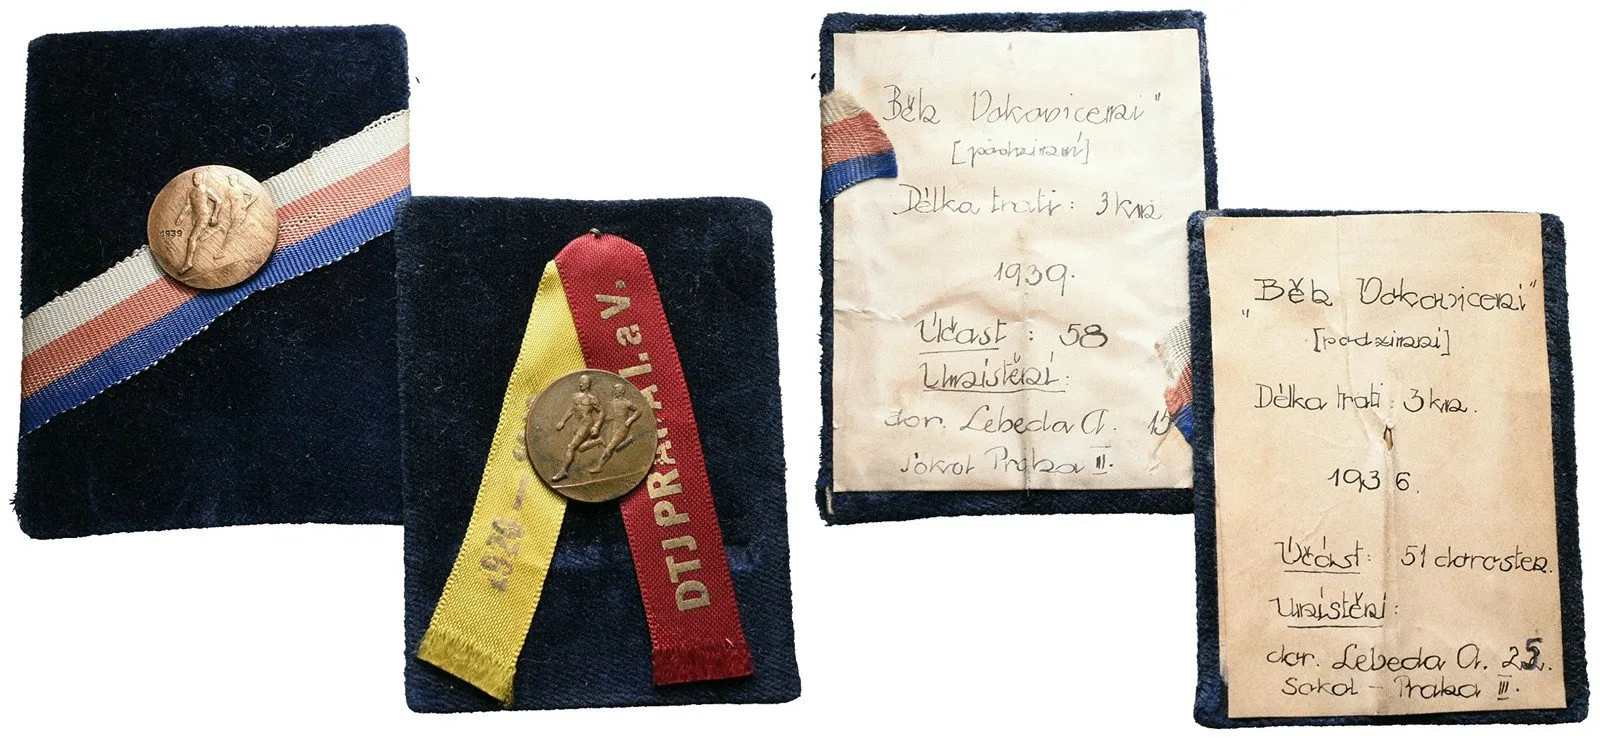 1939
DTJ PRAHA I. a V.
Běh Vokovicemi"
[podzimní]
Délka trati: 3 km
1939.
Účast: 58
Umístění:
dor. Lebeda A.
Sokol Praha III.
"Běh Vokovicemi"
[podzimní]
Délka trati: 3 km.
1936.
Účast: 51 dorosten.
Umístění:
dor. Lebeda A. 25.
Sokol - Praha III.